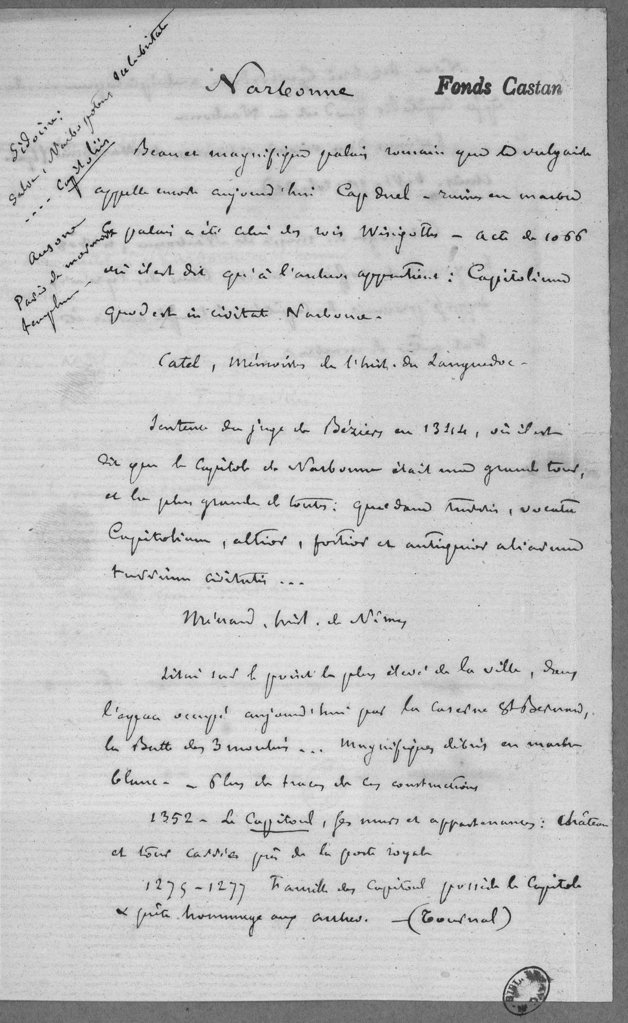 Narbonne
Fonds Castan
Sidoine:
Salve, Narbo potens salubritate
.... Capitoliis
Ausone
Pario de marmore
templum
Beau et magnifique palais romain que le vulgaire
appelle encore aujourd'hui Capduel – ruines en marbre
Ce palais a été celui des rois Wisigoths – acte de 1066
où il est dit qu'à l'archev. appartient: Capitolium
quod est in civitate Narbona –
Catel, Mémoires de l'hist. du Languedoc –
Sentence du juge de Béziers en 1344, où il est
dit que le Capitole de Narbonne était une grande tour,
et la plus grande de toutes: quædam turris, vocata
Capitolium, altior, fortior et antiquior aliarum
turrium civitatis ...
Ménard, hist. de Nîmes
Situé sur le point le plus élevé de la ville, dans
l'espace occupé aujourd'hui par la caserne St Bernard,
la Butte des 3 moulins ... Magnifiques débris en marbre
blanc – – Plus de traces de ces constructions
1352 – Le Capitoul, ses murs et appartenances: château
et tour carrée près de la porte royale
1275–1277 Famille des Capitoul possède le Capitole
& prête hommage aux archev. – (Tournal)